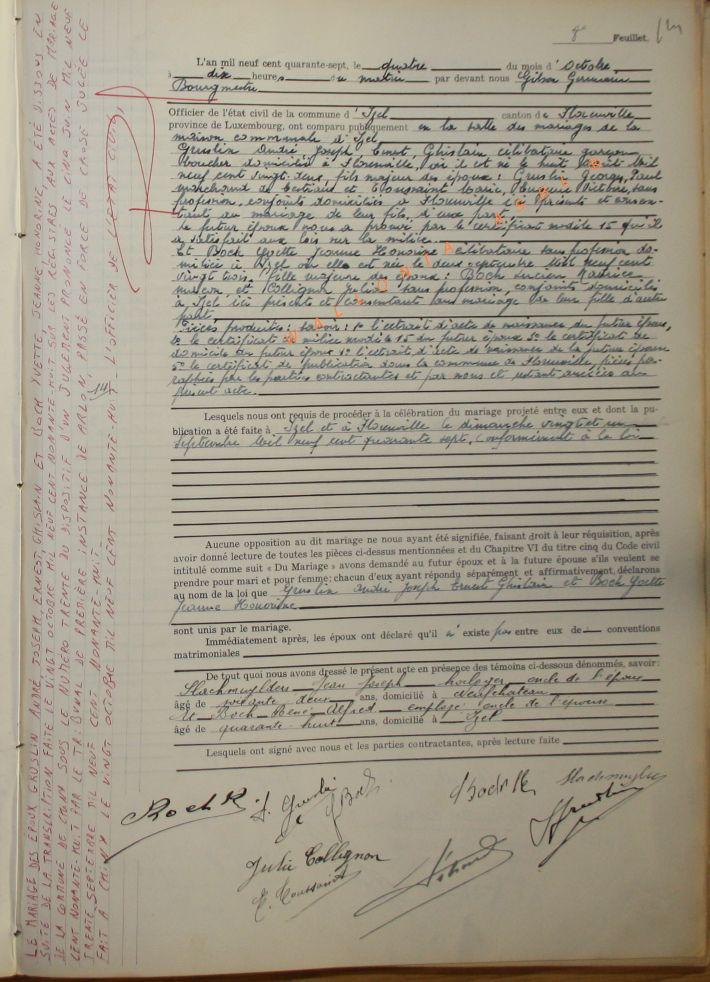 8e Feuillet.
L'an mil neuf cent quarante-sept, le quatre du mois d'Octobre,
à dix heures du matin par devant nous Gilson Germain
Bourgmestre
Officier de l'état civil de la commune d'Izel canton de Florenville
province de Luxembourg, ont comparu publiquement en la salle des mariages de la
maison communale d'Izel
Gruslin André Joseph Ernest Ghislain célibataire garçon
boucher domicilié à Florenville, où il est né le huit Août Mil
neuf cent vingt-deux, fils majeur des époux : Gruslin Georges, Paul
marchand de bestiaux et Toussaint Marie, Victoire, sans
profession, conjoints domiciliés à Florenville ici présents et consen-
tant au mariage de leur fils, d'une part
le futur époux nous a prouvé par le certificat modèle 15 qu'il
a satisfait aux lois sur la milice.
Et Bock Yvette Jeanne Honorine célibataire sans profession do-
miciliée à Izel où elle est née le deux septembre Mil neuf cent
vingt trois, fille majeure des époux : Bock Lucien Maurice
maçon et Collignon Julia sans profession, conjoints domiciliés
à Izel ici présents et consentant au mariage de leur fille d'autre
part.
Pièces produites : savoir : 1° l'extrait d'acte de naissance du futur époux,
2° le certificat de milice modèle 15 du futur époux 3° le certificat de
domicile du futur époux l'extrait d'acte de naissance de la future épouse
5° le certificat de publication dans la commune de Florenville pièces pa-
raphées par les parties contractantes et par nous et restant annexées au
présent acte.
Lesquels nous ont requis de procéder à la célébration du mariage projeté entre eux et dont la pu-
blication a été faite à Izel et à Florenville le dimanche vingt et un
Septembre Mil neuf cent quarante sept. Conformément à la loi
Aucune opposition au dit mariage ne nous ayant été signifiée, faisant droit à leur réquisition, après
avoir donné lecture de toutes les pièces ci-dessus mentionnées et du Chapitre VI du titre cinq du Code civil
intitulé comme suit « Du Mariage » avons demandé au futur époux et à la future épouse s'ils veulent se
prendre pour mari et pour femme; chacun d'eux ayant répondu séparément et affirmativement, déclarons
au nom de la loi que Gruslin André Joseph Ernest Ghislain et Bock Yvette
Jeanne Honorine
sont unis par le mariage.
Immédiatement après, les époux ont déclaré qu'il n'existe pas entre eux de conventions
matrimoniales
De tout quoi nous avons dressé le présent acte en présence des témoins ci-dessous dénommés, savoir:
Slachmuylders Jean Joseph horloger, oncle de l'époux
âgé de soixante deux ans, domicilié à Neufchâteau
et Bock René Alfred employé oncle de l'épouse
âgé de quarante huit ans, domicilié à Izel
Lesquels ont signé avec nous et les parties contractantes, après lecture faite
Bock R
Y Bock
Slachmuylders
Julie Collignon
Toussaint
LE MARIAGE DES ÉPOUX GRUSLIN ANDRÉ JOSEPH ERNEST GHISLAIN ET BOCK YVETTE JEANNE HONORINE A ÉTÉ DISSOUS EN
SUITE DE LA TRANSCRIPTION FAITE LE VINGT OCTOBRE MIL NEUF CENT NONANTE-HUIT SUR LES REGISTRES AUX ACTES DE MARIAGE
DE LA COMMUNE DE SOUS LE NUMÉRO TRENTE DU DISPOSITIF D'UN JUGEMENT PRONONCÉ LE CINQ JUIN MIL NEUF
CENT NONANTE-HUIT PAR LE TRIBUNAL DE PREMIÈRE INSTANCE DE ARLON PASSÉ EN FORCE DE CHOSE JUGÉE LE
TRENTE SEPTEMBRE MIL NEUF CENT NONANTE-HUIT.
FAIT À CHINY LE VINGT OCTOBRE MIL NEUF CENT NONANTE-HUIT. L'OFFICIER DE L'ÉTAT CIVIL,